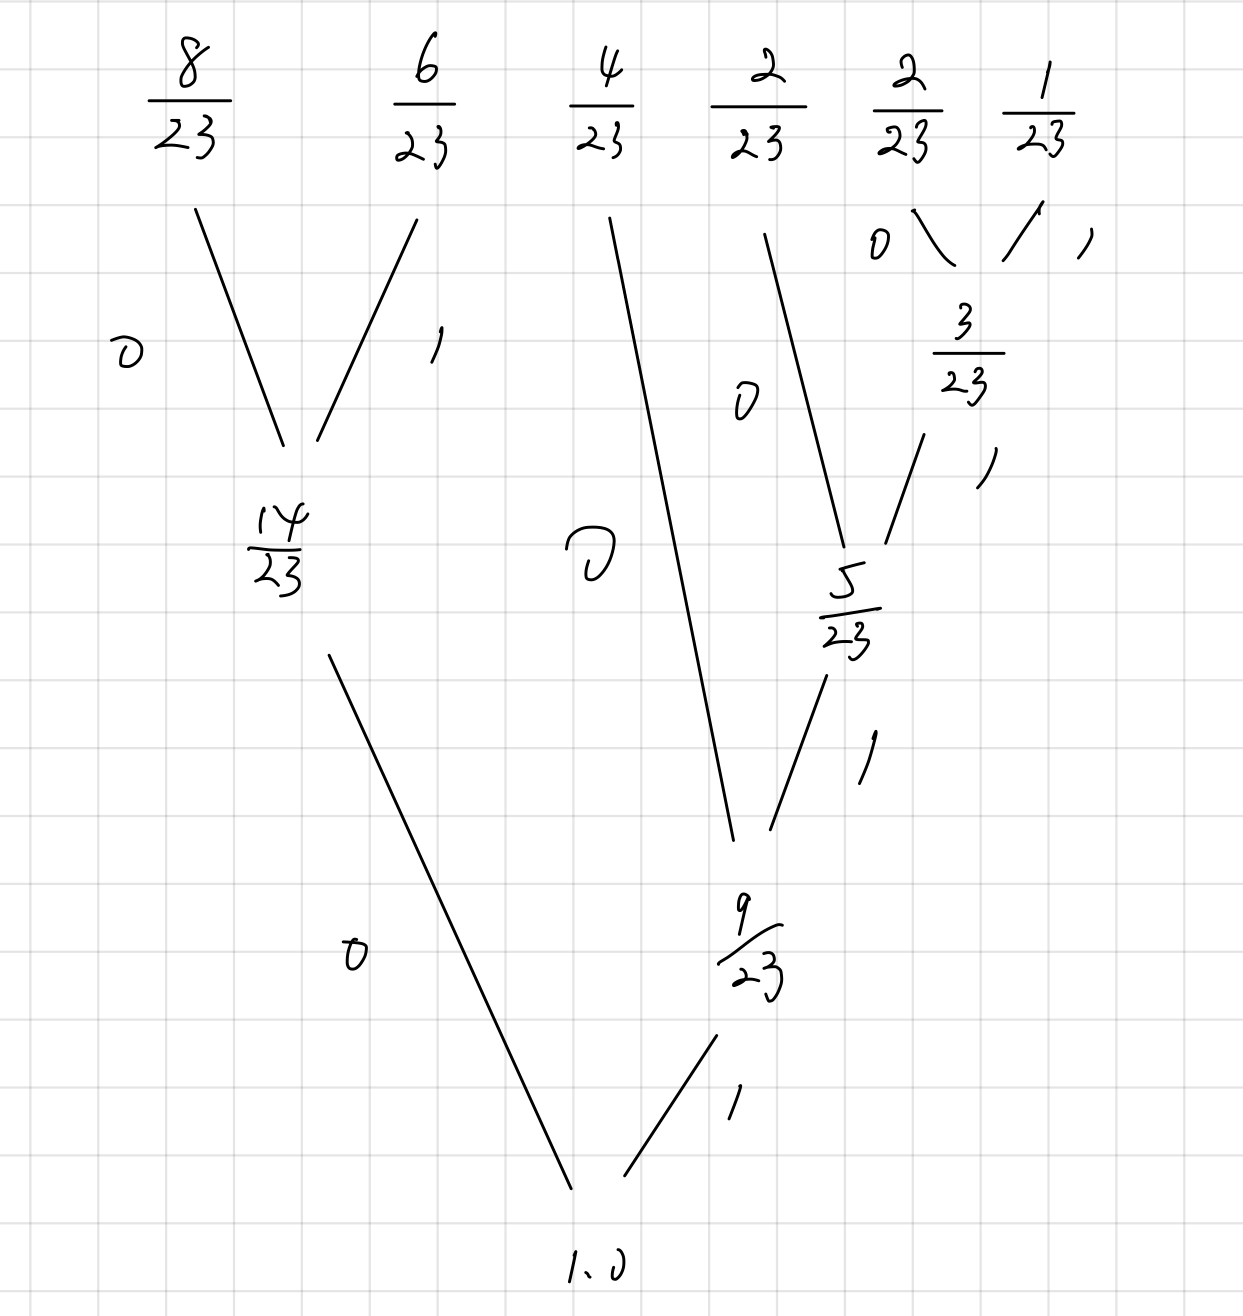 8/23 6/23 4/23 2/23 2/23 1/23
0 1
3/23
0 1
0 1
14/23 0 5/23
1
9/23
0
1
1.0